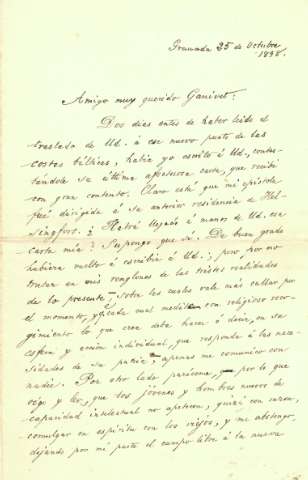 Granada 25 de Octubre
1898.
Amigo muy querido Ganivet:
Dos días antes de haber leido el
traslado de Ud. á ese nuevo punto de las
costas bálticas, había yo escrito á Ud., contes-
tándole su última afectuosa carta, que recibí
con gran contento. Claro está que mi epístola
fué dirigida á su anterior residencia de Hel-
singfors. ¿Habrá llegado á manos de Ud. esa
carta mía? Supongo que sí. De buen grado
hubiera vuelto á escribir á Ud.; pero, por no
tratar en mis renglones de las tristes realidades
de lo presente, sobre las cuales vale más callar por
el momento, y cada cual medite con religioso reco-
gimiento lo que crea deba hacer ó decir, en su
esfera y acción individual, que responda á las nece-
sidades de su patria, apenas me comunico con
nadie. Por otro lado paréceme, por lo que
oigo y leo, que los jóvenes y hombres nuevos de
capacidad intelectual no apetecen, quizá con razón,
comulgar en espíritu con los viejos, y me abstengo,
dejando por mi parte el campo libre á la nueva